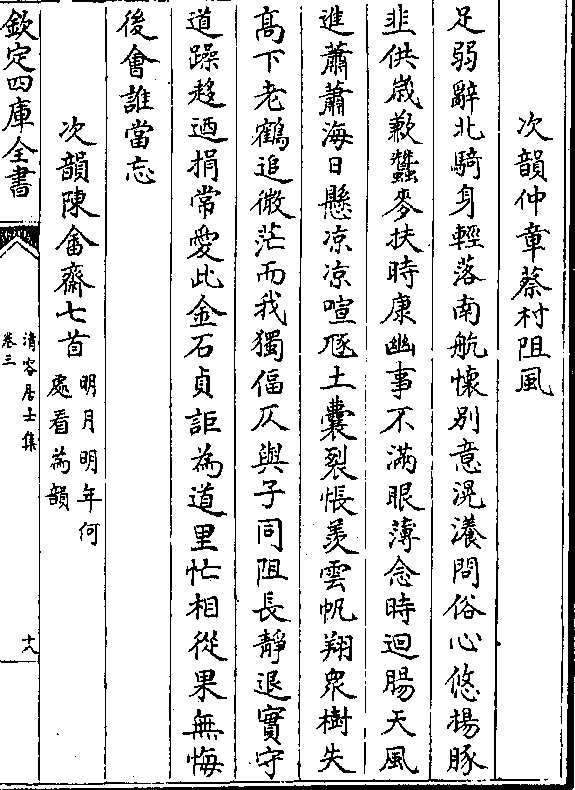 次韻仲章蔡村阻風
足弱辭北騎身輕落南航懷別意滉瀁問俗心悠揚豚
韭供歲歉蠶麥扶時康幽事不滿眼薄念時迴腸天風
進蕭蕭海日懸凉凉喧豗土囊裂悵羨雲帆翔衆樹失
髙下老鶴追微茫而我獨傴仄與子同阻長靜退實守
道躁趍迺捐常愛此金石貞詎為道里忙相從果無悔
後會誰當忘
次韻陳畬齋七首明月明年何處看為韻
欽定四庫全書
清容居士集
卷三
十八